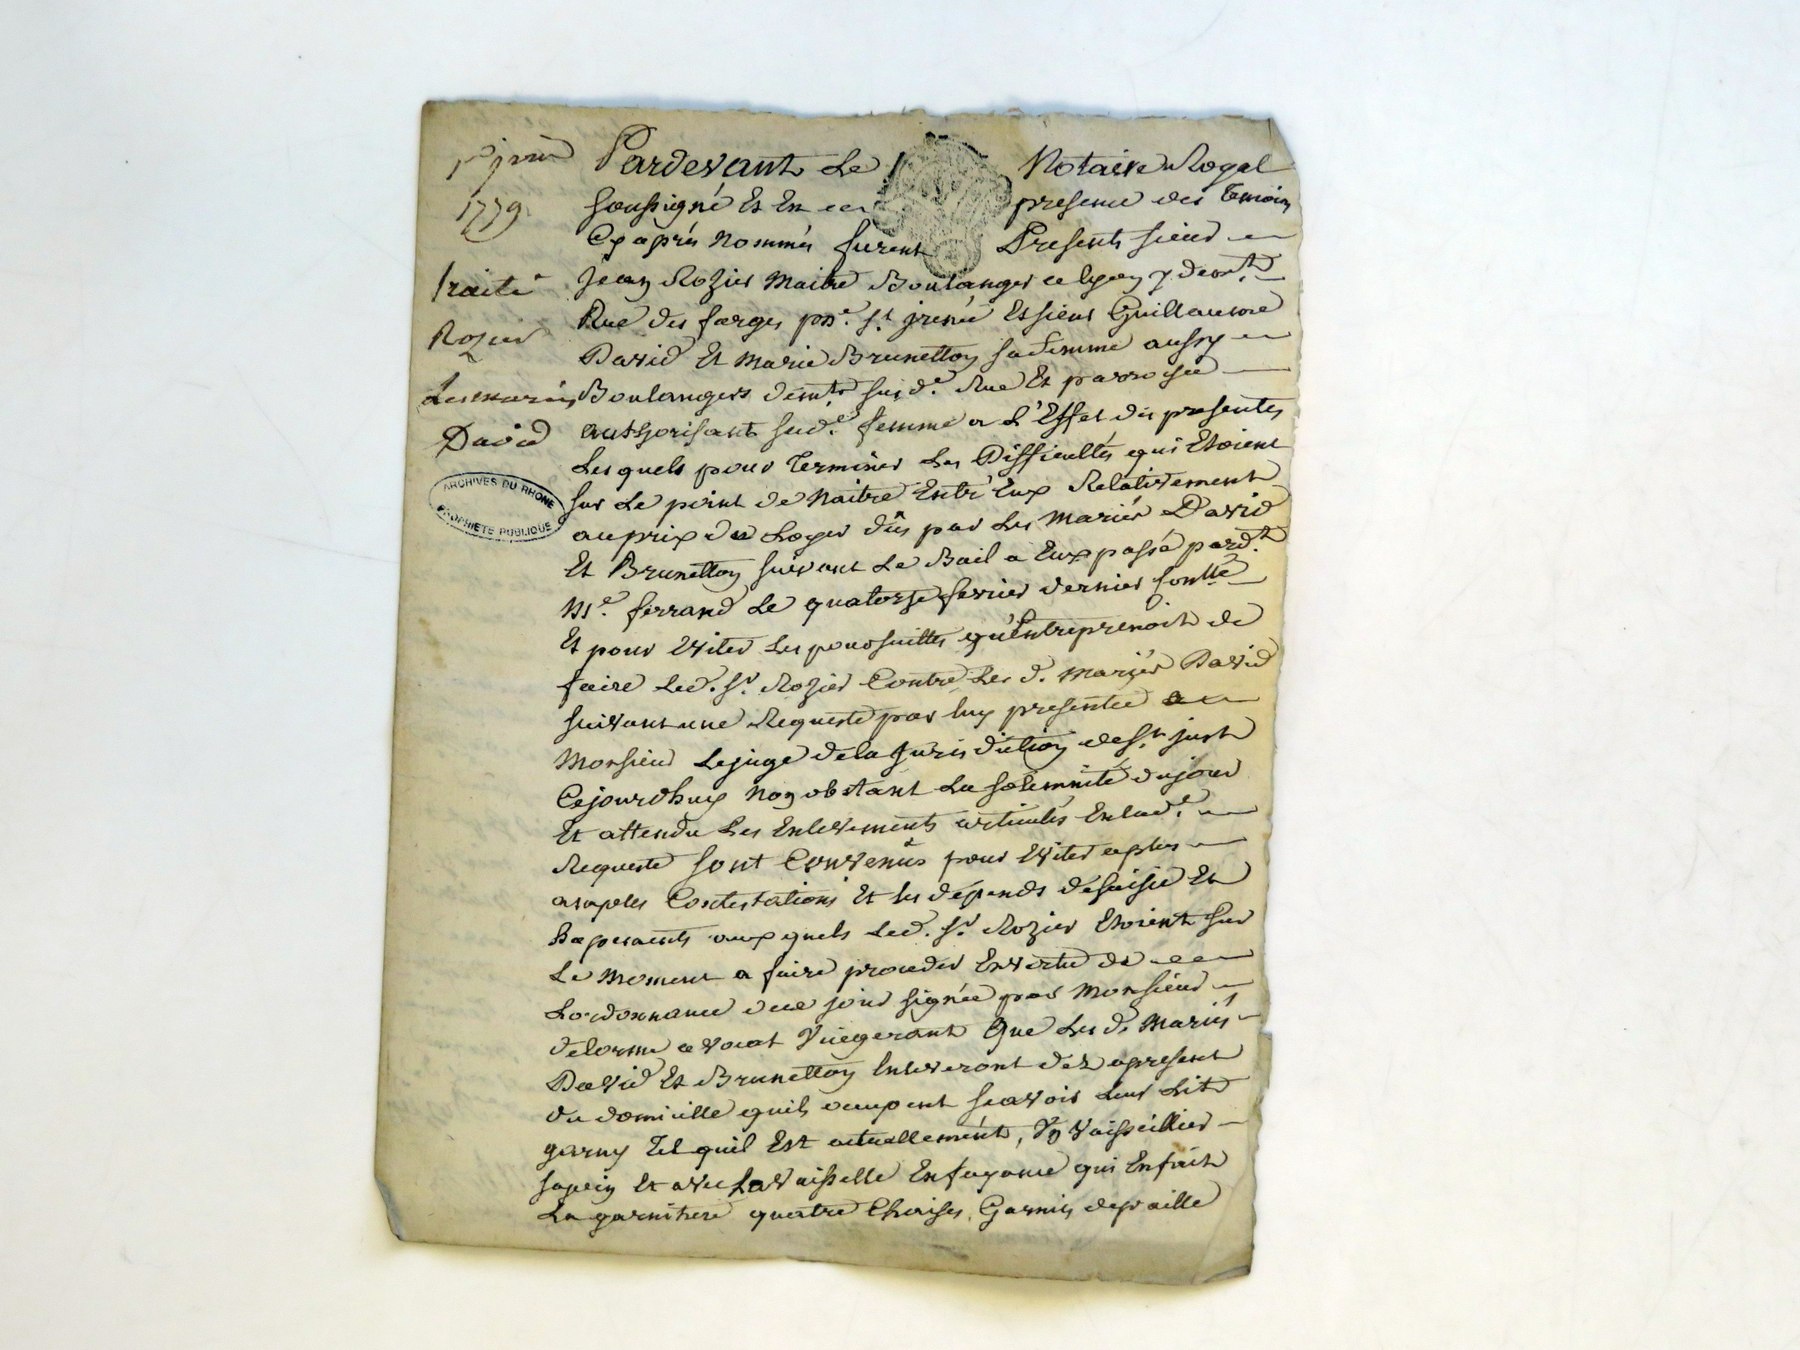 1er juin
1779
traité
Rozier
Les mariés
David
ARCHIVES DU RHONE
PROPRIÉTÉ PUBLIQUE
Pardevant Le Notaire Royal
Soussigné Et En presence des temoins
Cy après Nommés furent Presents sieur
Jean Rozier Maitre Boulanger a lyon y demt.
Rue des farges psse. st. jrenée Et sieur Guillaume
David Et Marie Brunetton sa femme aussy
Boulangers demts. susde. Rue Et parroisse
authorisant sade. femme a L'Effet des presentes
Lesquels pour Terminer Les Difficultés qui Etoient
sur Le point de Naitre Entr'Eux Relativement
au prix du Loyer dûs par Les Mariés David
Et Brunetton suivant Le Bail a Eux passé pardt.
Me. ferrand Le quatorze fevrier dernier
Et pour Eviter Les poursuittes qu'Entreprenoit de
faire Led. Sr. Rozier Contre Les d. Mariés David
suivant une Requeste par luy presentée a
Monsieur Le juge de la Jurisdiction de St. just
Cejourdhuy Non obstant La solemnité du jour
Et attendu Les Enlevements articulés En lade.
Requeste sont Convenûs pour Eviter a plus
amples Contestations Et les dépends de saisie Et
Sequels Led. Sr. Rozier Etoient sur
Le Moment a faire proceder En vertu de
Lordonnance de ce jour signée par Monsieur
delorme avocat Vicegerant Que Les d. Mariés
David Et Brunetton Enleveront dez apresent
du domicille quils occupent scavoir Leur Lit
garny Tel quil Est actuellement, Un Vaisseillier
sapin Et avec La Vaisselle En fayance qui En fait
La garniture quatre Chaises Garnies de paille